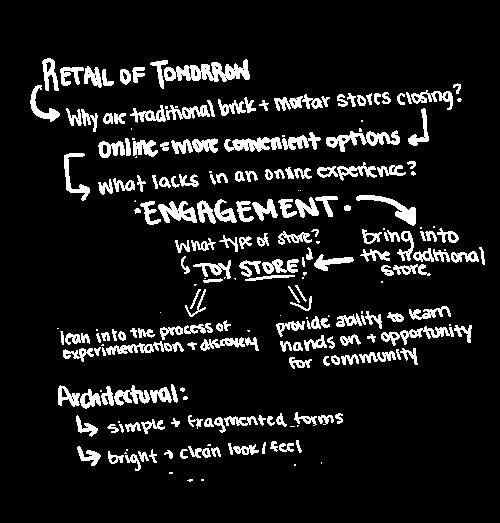 RETAIL OF TOMORROW
Why are traditional brick + mortar stores closing?
Online = more convenient options
What lacks in an online experience?
• ENGAGEMENT •
What type of store?
TOY STORE!
bring into
the traditional
store.
lean into the process of
experimentation + discovery
provide ability to learn
hands on + opportunity
for community
Architectural:
simple + fragmented forms
bright + clean look/feel